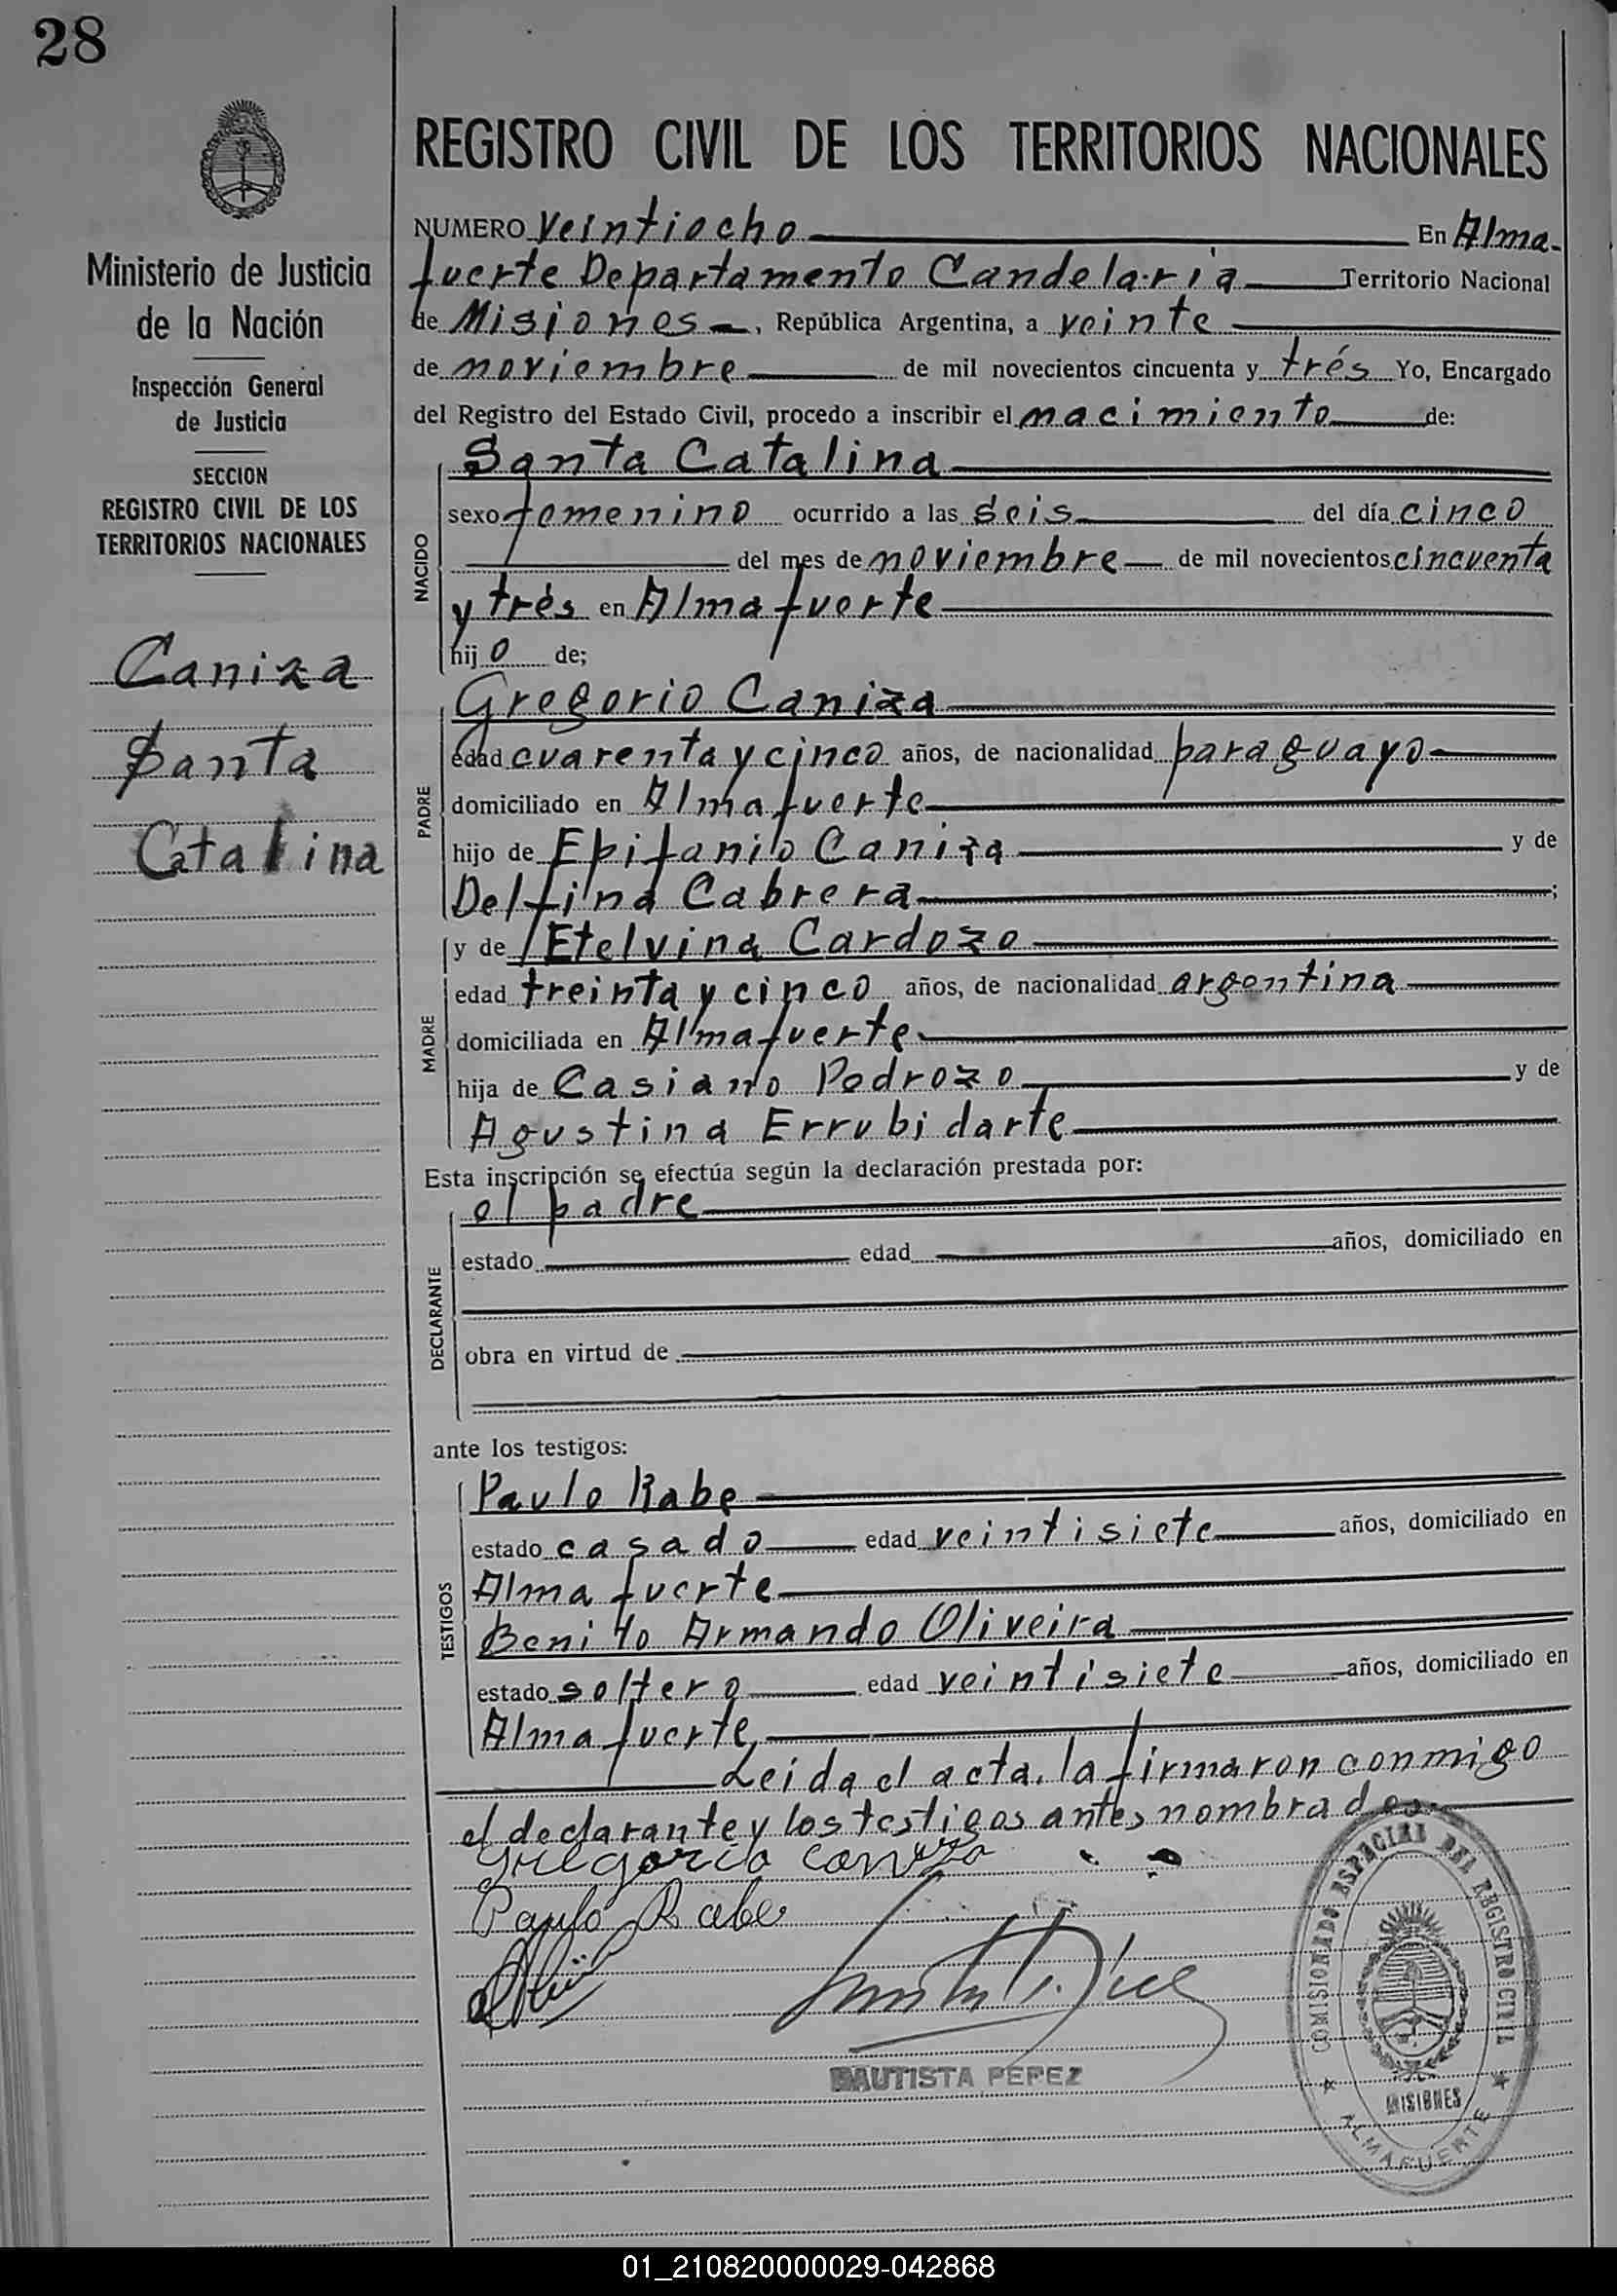 28
Ministerio de Justicia
de la Nación
Inspección General
de Justicia
SECCION
REGISTRO CIVIL DE LOS
TERRITORIOS NACIONALES
Caniza
Santa
Catalina
REGISTRO CIVIL DE LOS TERRITORIOS NACIONALES
NUMERO Veintiocho En Alma-
fuerte Departamento Candelaria Territorio Nacional
de Misiones, República Argentina, a veinte
de noviembre de mil novecientos cincuenta y trés Yo, Encargado
del Registro del Estado Civil, procedo a inscribir el nacimiento de:
NACIDO
Santa Catalina
sexo femenino ocurrido a las seis del día cinco
del mes de noviembre de mil novecientos cincuenta
y trés en Almafuerte
hijo de;
PADRE
Gregorio Caniza
edad cuarenta y cinco años, de nacionalidad paraguayo
domiciliado en Almafuerte
hijo de Epifanio Caniza y de
Delfina Cabrera;
MADRE
y de Etelvina Cardozo
edad treinta y cinco años, de nacionalidad argentina
domiciliada en Almafuerte
hija de Casiano Pedrozo y de
Agustina Errubidarte
Esta inscripción se efectúa según la declaración prestada por:
DECLARANTE
el padre
estado edad años, domiciliado en
obra en virtud de
ante los testigos:
TESTIGOS
Paulo Rabe
estado casado edad veintisiete años, domiciliado en
Almafuerte
Benito Armando Oliveira
estado soltero edad veintisiete años, domiciliado en
Almafuerte,
Leida el acta, la firmaron conmigo
el declarante y los testigos antes nombrados.
Gregorio Caniza
Paulo Rabe
BAUTISTA PEREZ
COMISIONADO ESPECIAL DEL REGISTRO CIVIL
MISIONES
ALMAFUERTE
01_210820000029-042868